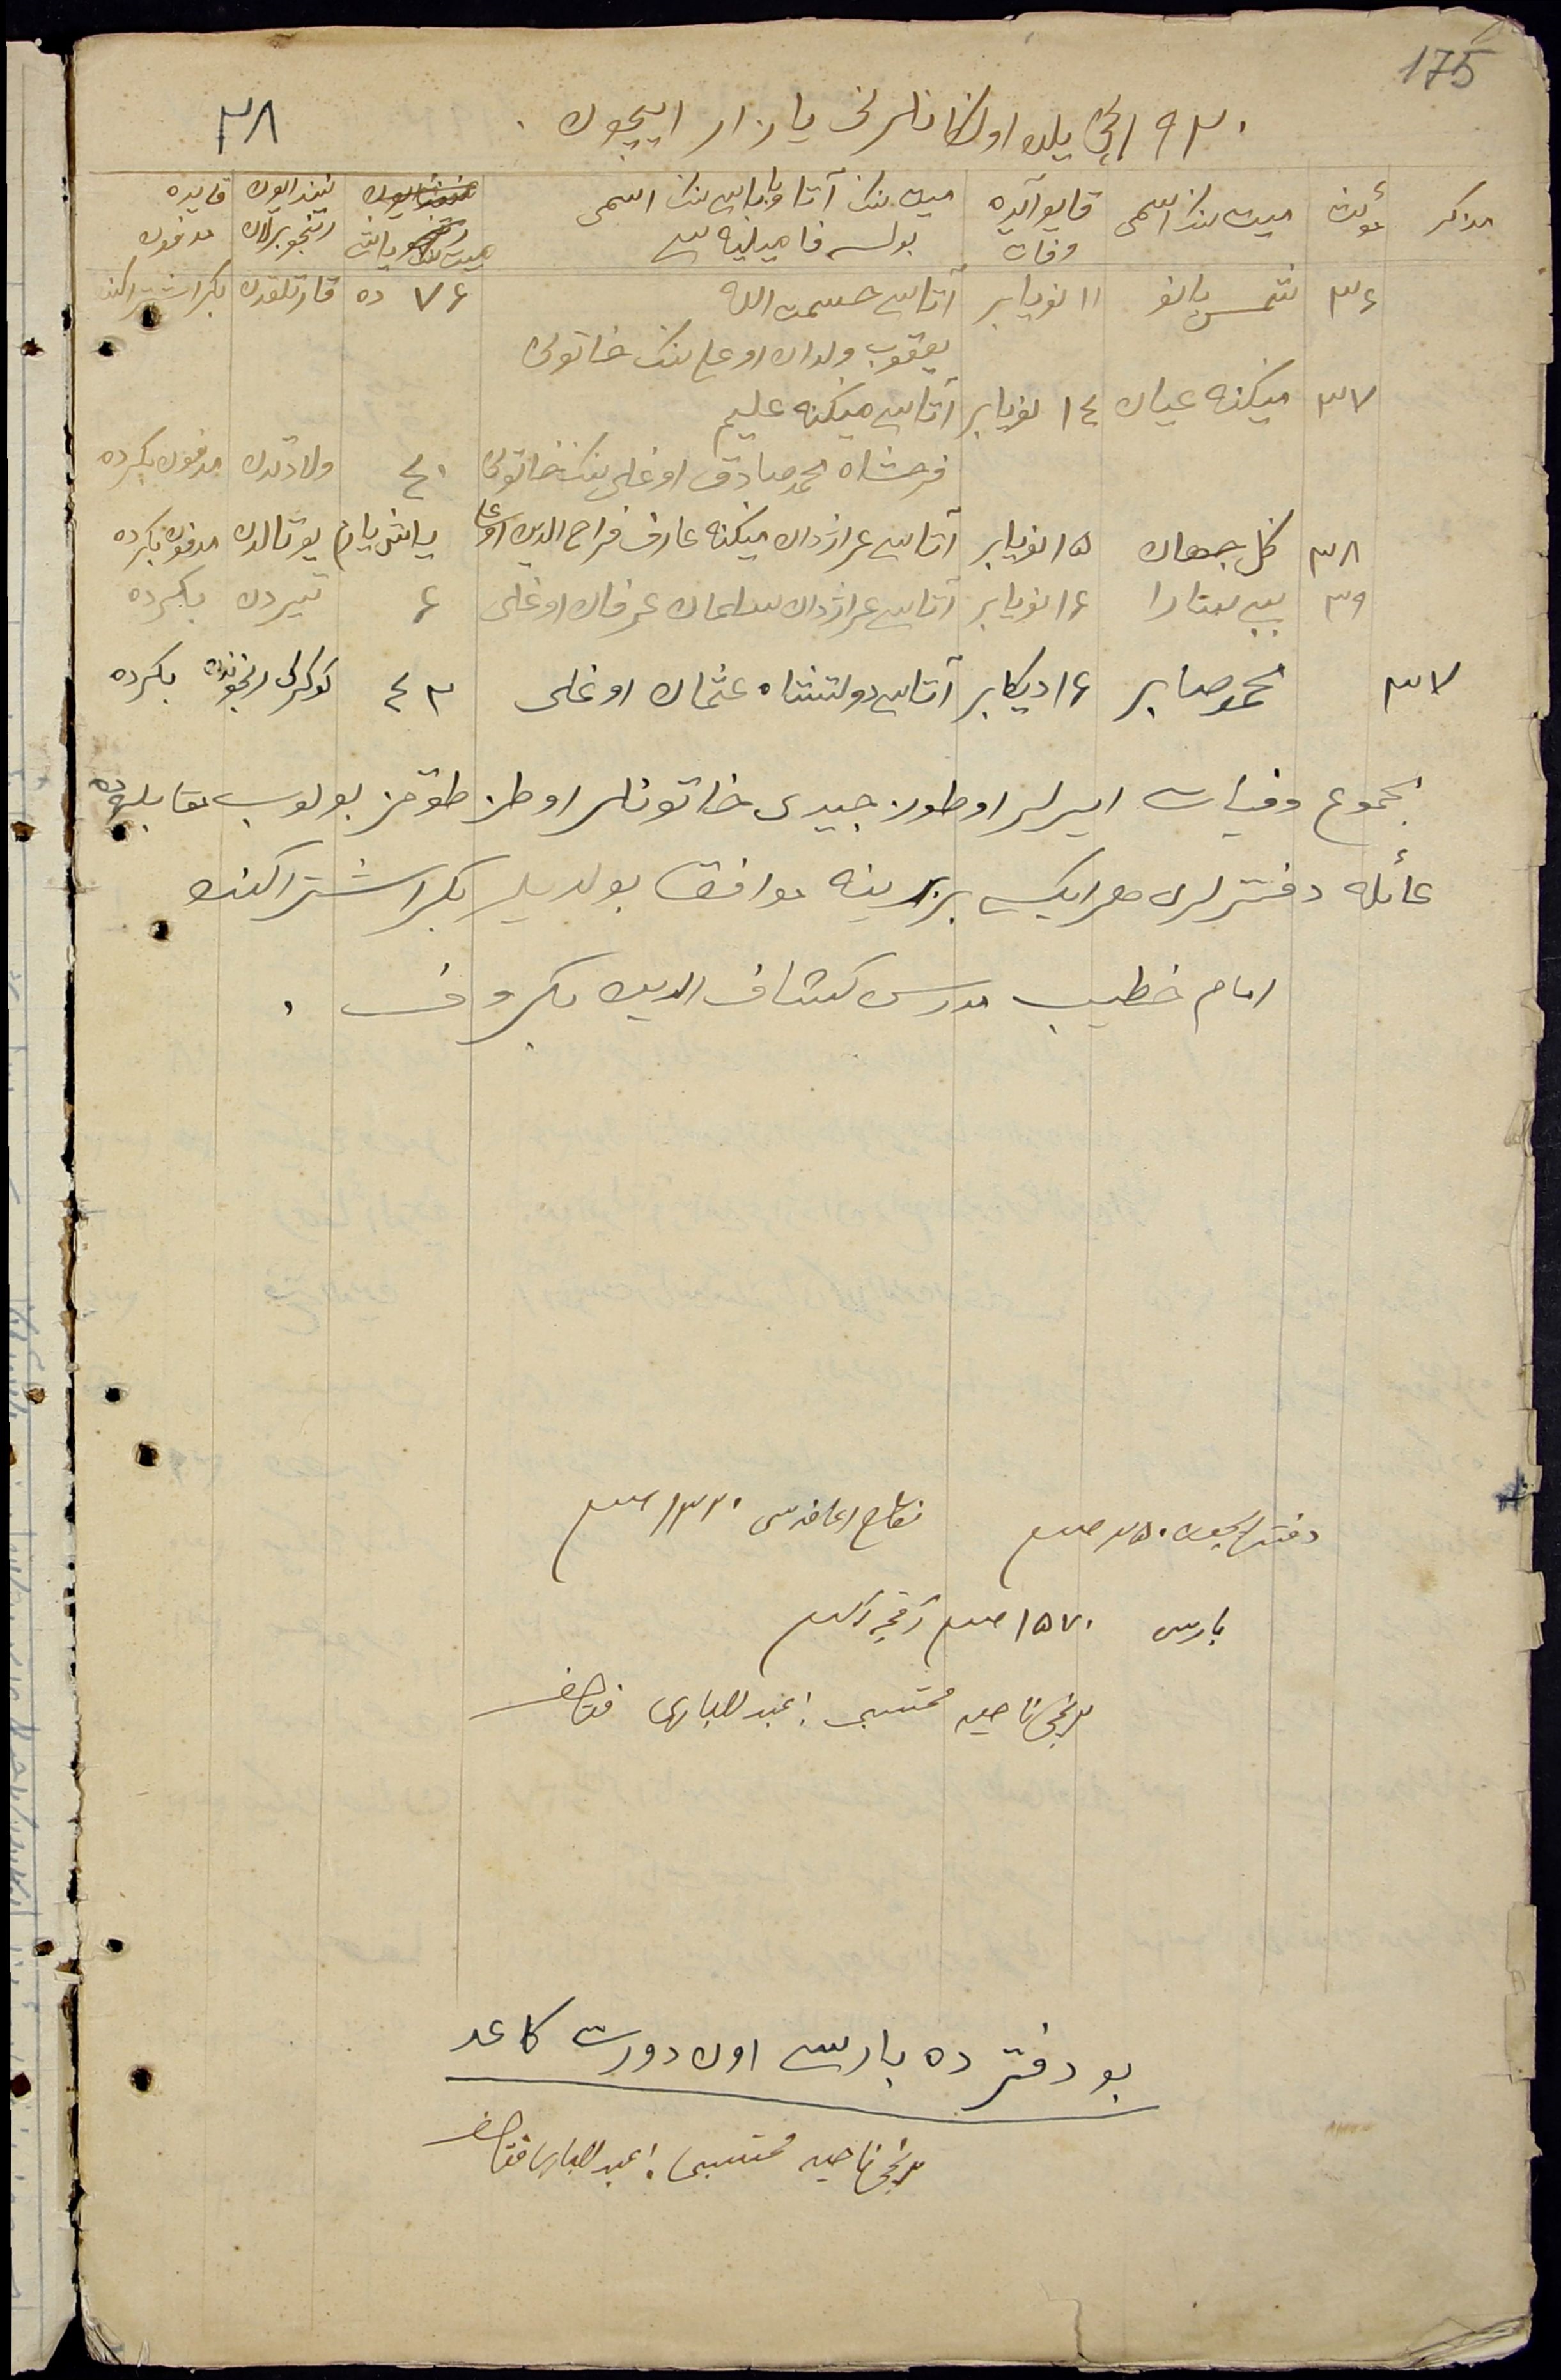 175
٣٨
٩٣٠ ١نچی یلده اولگانلرنی یازار ایچون .
مذکر مؤنث میت ننک اسمی قایو آیده وفات میت ننک آتا وباباسی ننک اسمی بولسه فامیلیه سی میت ننک یاشی نیندایون رنجو برلان قایده مدفون
٣۶ شمس بانو ١١ نویابر آتاسی حسمت الله ٧۶ ده قارتلقدن بکر اشتراکند
یعقوب ولدان اوغلی ننک خاتونی
٣٧ میکنه عیان ١٤ نویابر آتاسی میکنه علیم
فرحشاه محمدصادق اوغلی ننک خاتونی ٤٠ ولادتدن مدفون بکرده
٣٨ گل جهان ١۵ نویابر آتاسی عراژدان میکنه عارف فراح الدین اوغلی یاش یارم یوتالدن مدفون بکرده
٣٩ بیبی سارا ١۶ نویابر آتاسی عراژدان سلیمان عرفان اوغلی ۶ تیردن بکرده
٣٧ محمدصابر ١۶ دیکابر آتاسی دولتشاه عثمان اوغلی ٤٣ کوکرک رنجوندن بکرده
مجموع وفیات ایرلر اوطوز جیدی خاتونلر اوطز طوقز بولوب مقابله ده
عائله دفترلری هر ایکیسی بربرینه موافق بولدیلر بکر اشتراکند
امام خطیب مدرس کشاف الدین بکروف .
دفتر ایچون ٢۵٠ صم نکاح اعانه سی ١٣٢٠ صم
بارسی ١۵٧٠ صم آقچه آلدم
برنچی ناحیه محتسبی : عبدالباری فتاحف
بو دفتر ده بارسی اون دورت کاغد
برنچی ناحیه محتسبی : عبدالباری فتاحف